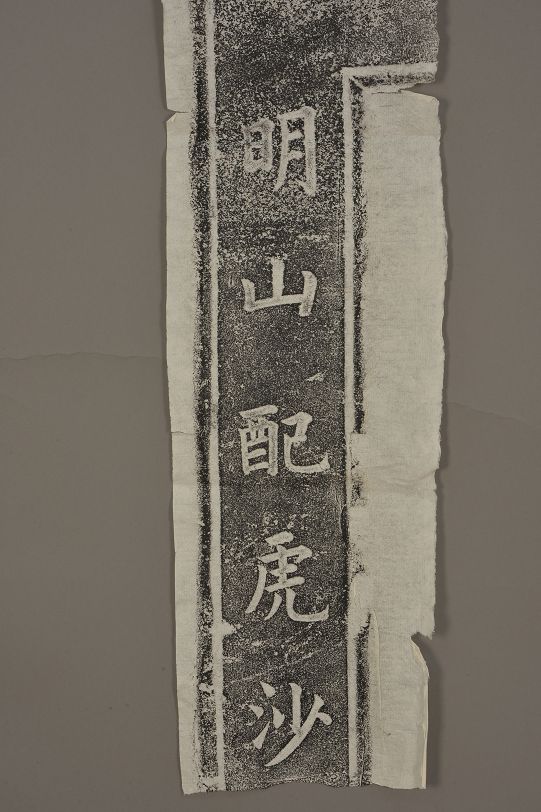 明山配虎沙